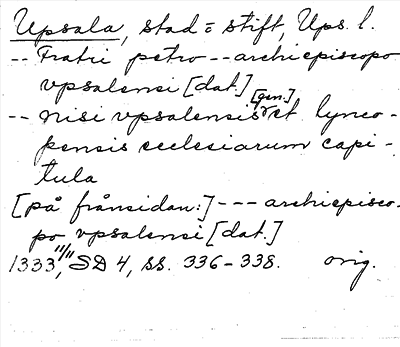 Upsala, stad o stift, Ups. l.
-- Fratri petro -- archiepiscopo
vpsalensi [dat.]
-- nisi vpsalensis [gen.] et lynco-
pensis ecclesiarum capi-
tula
[på frånsidan:] --- archiepisco-
po vpsalensi [dat.]
1333 11/11, SD 4, ss. 336-338. orig.